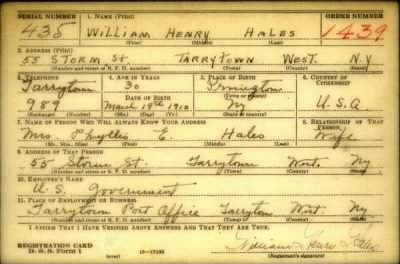 SERIAL NUMBER 1. NAME (Print) ORDER NUMBER
435 William Henry Hales 1439
(First) (Middle) (Last)
2. ADDRESS (Print)
55 Storm St. Tarrytown West. N.Y
(Number and street or R. F. D. number) (Town) (County) (State)
3. TELEPHONE 4. AGE IN YEARS 5. PLACE OF BIRTH 6. COUNTRY OF CITIZENSHIP
Tarrytown 30 Irvington
989 DATE OF BIRTH (Town or county)
March 19th 1910 Ny U.S.A.
(Exchange) (Number) (Mo.) (Day) (Yr.) (State or country)
7. NAME OF PERSON WHO WILL ALWAYS KNOW YOUR ADDRESS 8. RELATIONSHIP OF THAT PERSON
Mrs Phyllis E. Hales Wife
(Mr., Mrs., Miss) (First) (Middle) (Last)
9. ADDRESS OF THAT PERSON
55 Storm St. Tarrytown West. Ny
(Number and street or R. F. D. number) (Town) (County) (State)
10. EMPLOYER'S NAME
U.S. Government
11. PLACE OF EMPLOYMENT OR BUSINESS
Tarrytown Post Office Tarrytown West Ny
(Number and street or R. F. D. number) (Town) (County) (State)
I AFFIRM THAT I HAVE VERIFIED ABOVE ANSWERS AND THAT THEY ARE TRUE.
REGISTRATION CARD
D. S. S. FORM 1 16-17105 William Henry Hales
(Registrant's signature)